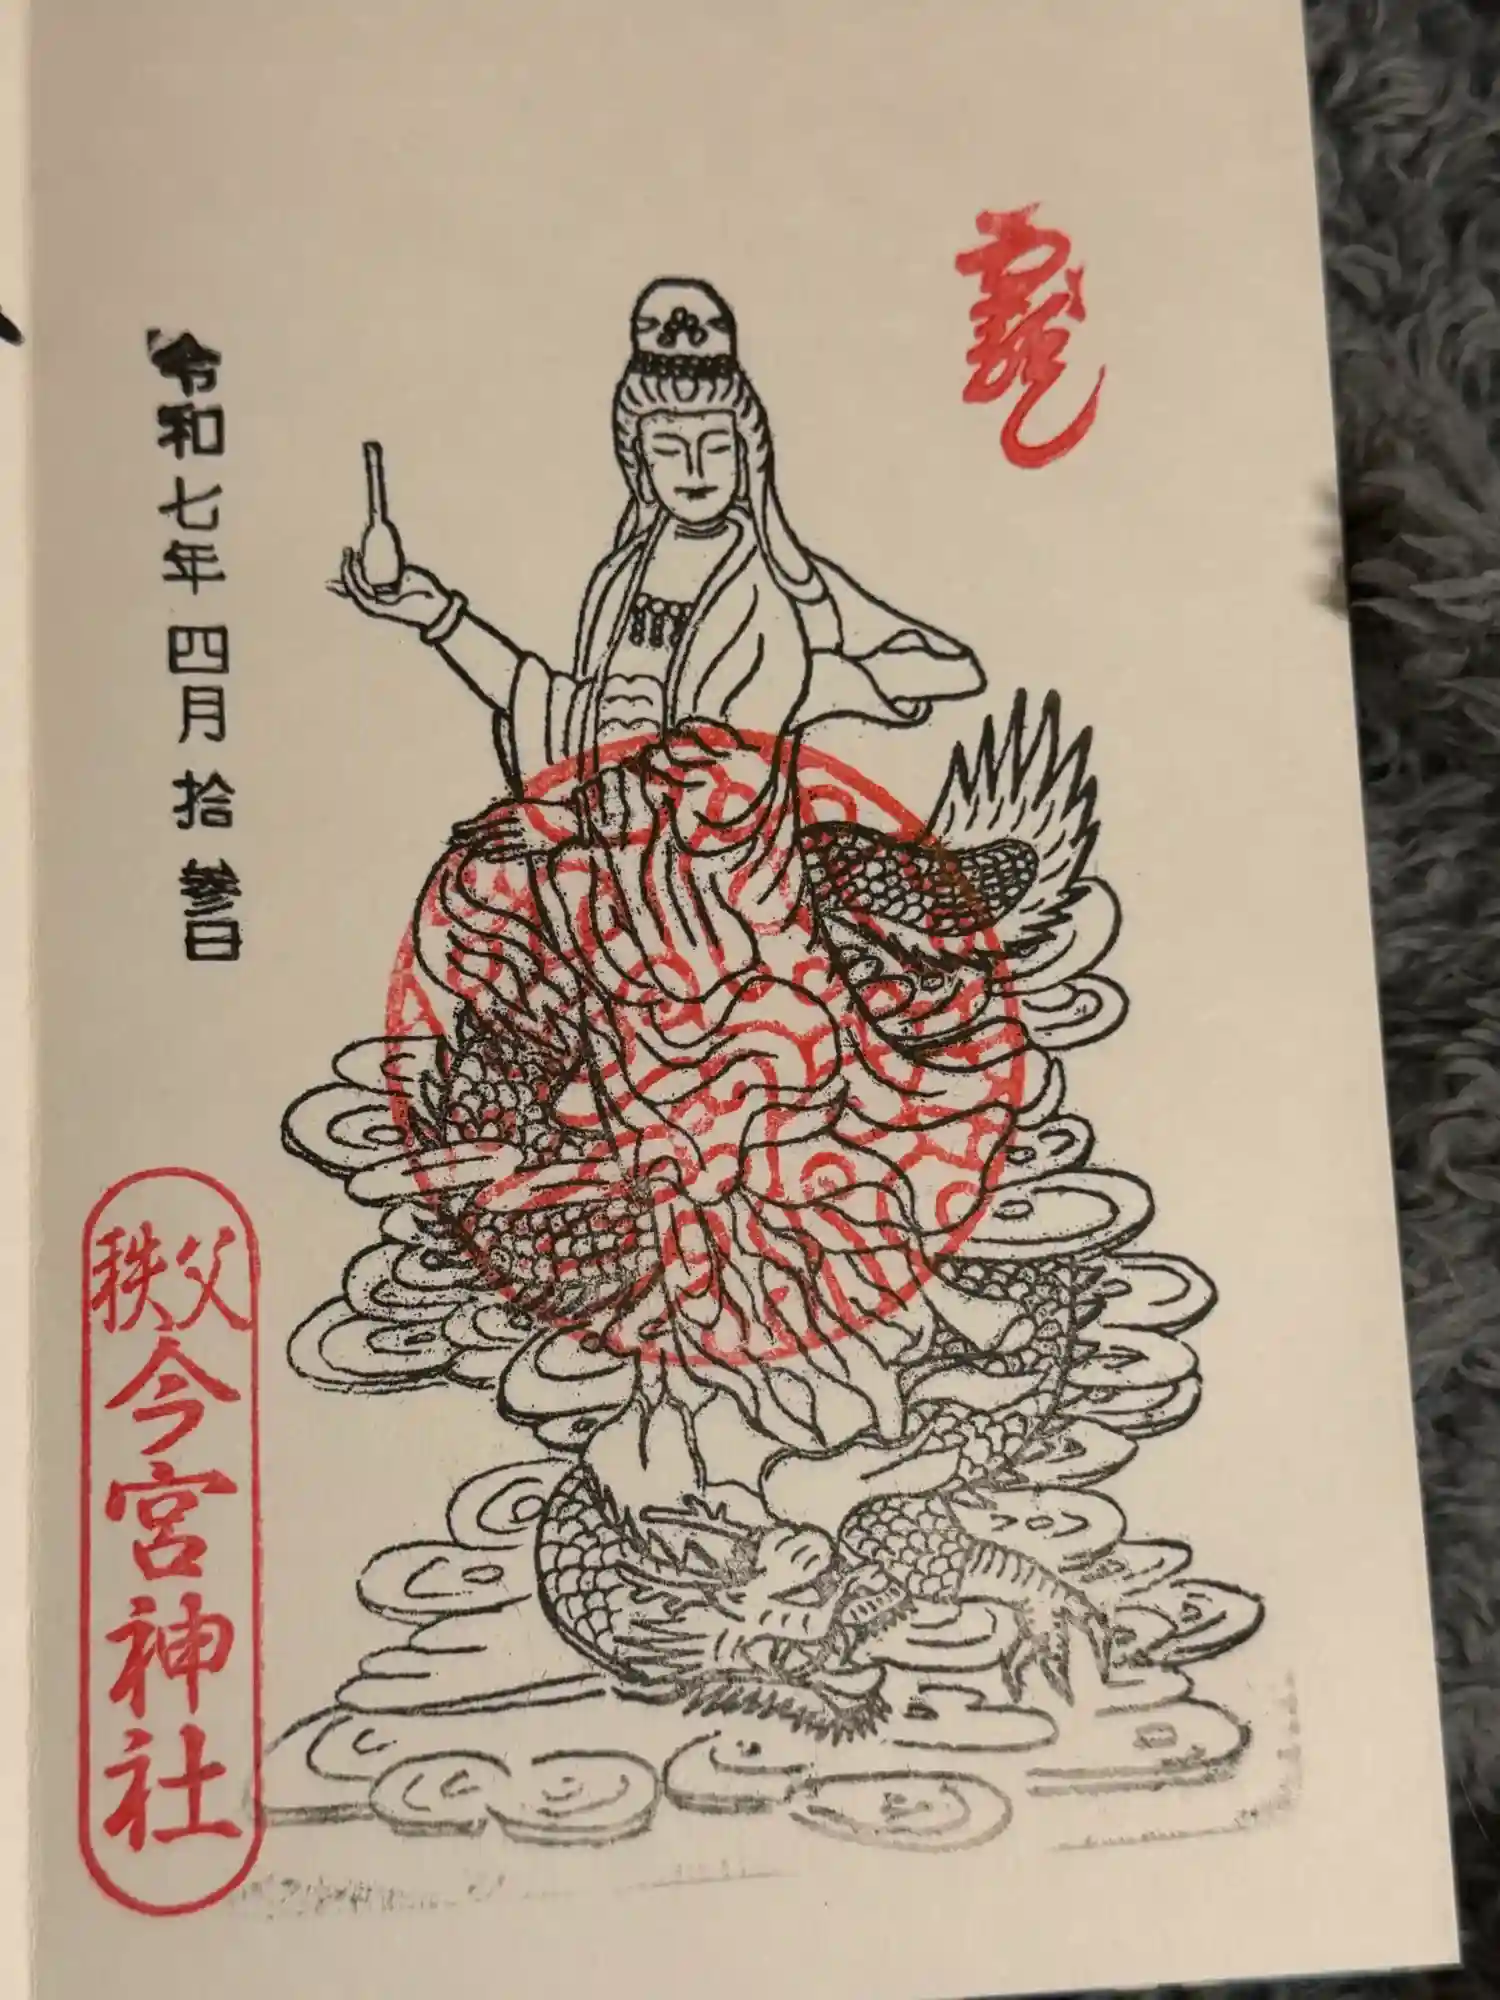 龍
令和七年四月拾参日
秩父
今宮神社